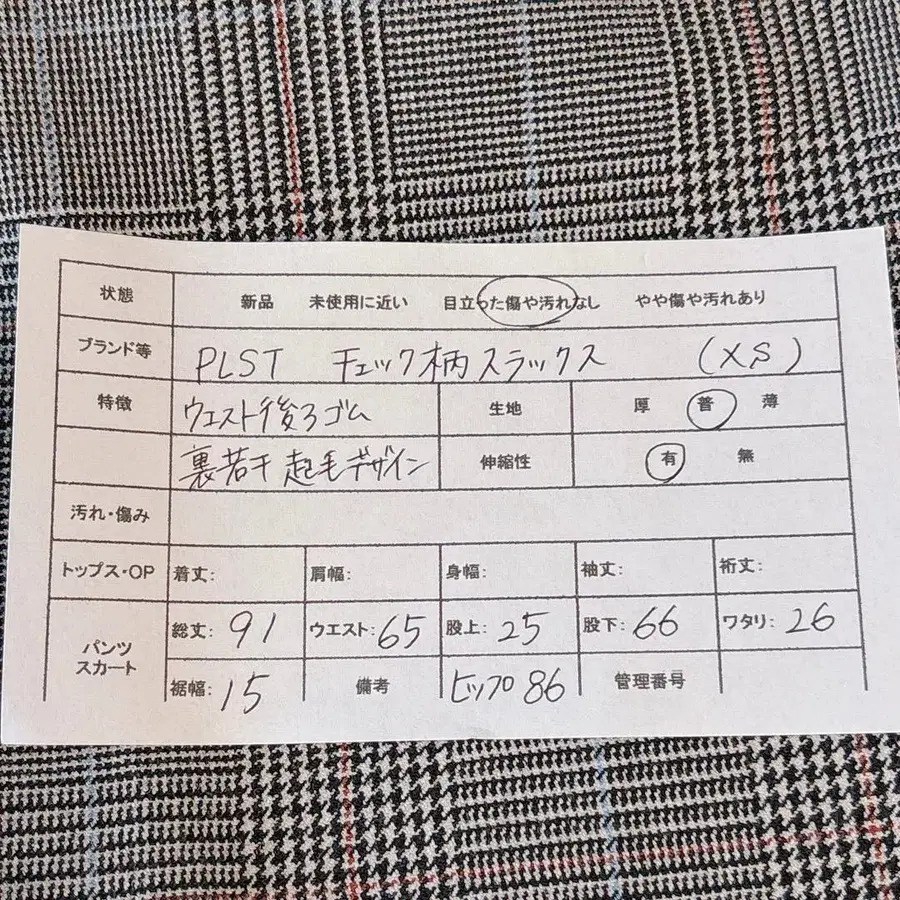 状態 新品 未使用に近い 目立った傷や汚れなし やや傷や汚れあり
ブランド等 PLST チェック柄スラックス (XS)
特徴 ウエスト後ろゴム 生地 厚 普 薄
裏若干起毛デザイン 伸縮性 有 無
汚れ・傷み
トップス・OP 着丈: 肩幅: 身幅: 袖丈: 裄丈:
パンツ スカート 総丈: 91 ウエスト: 65 股上: 25 股下: 66 ワタリ: 26
裾幅: 15 備考 ヒップ86 管理番号